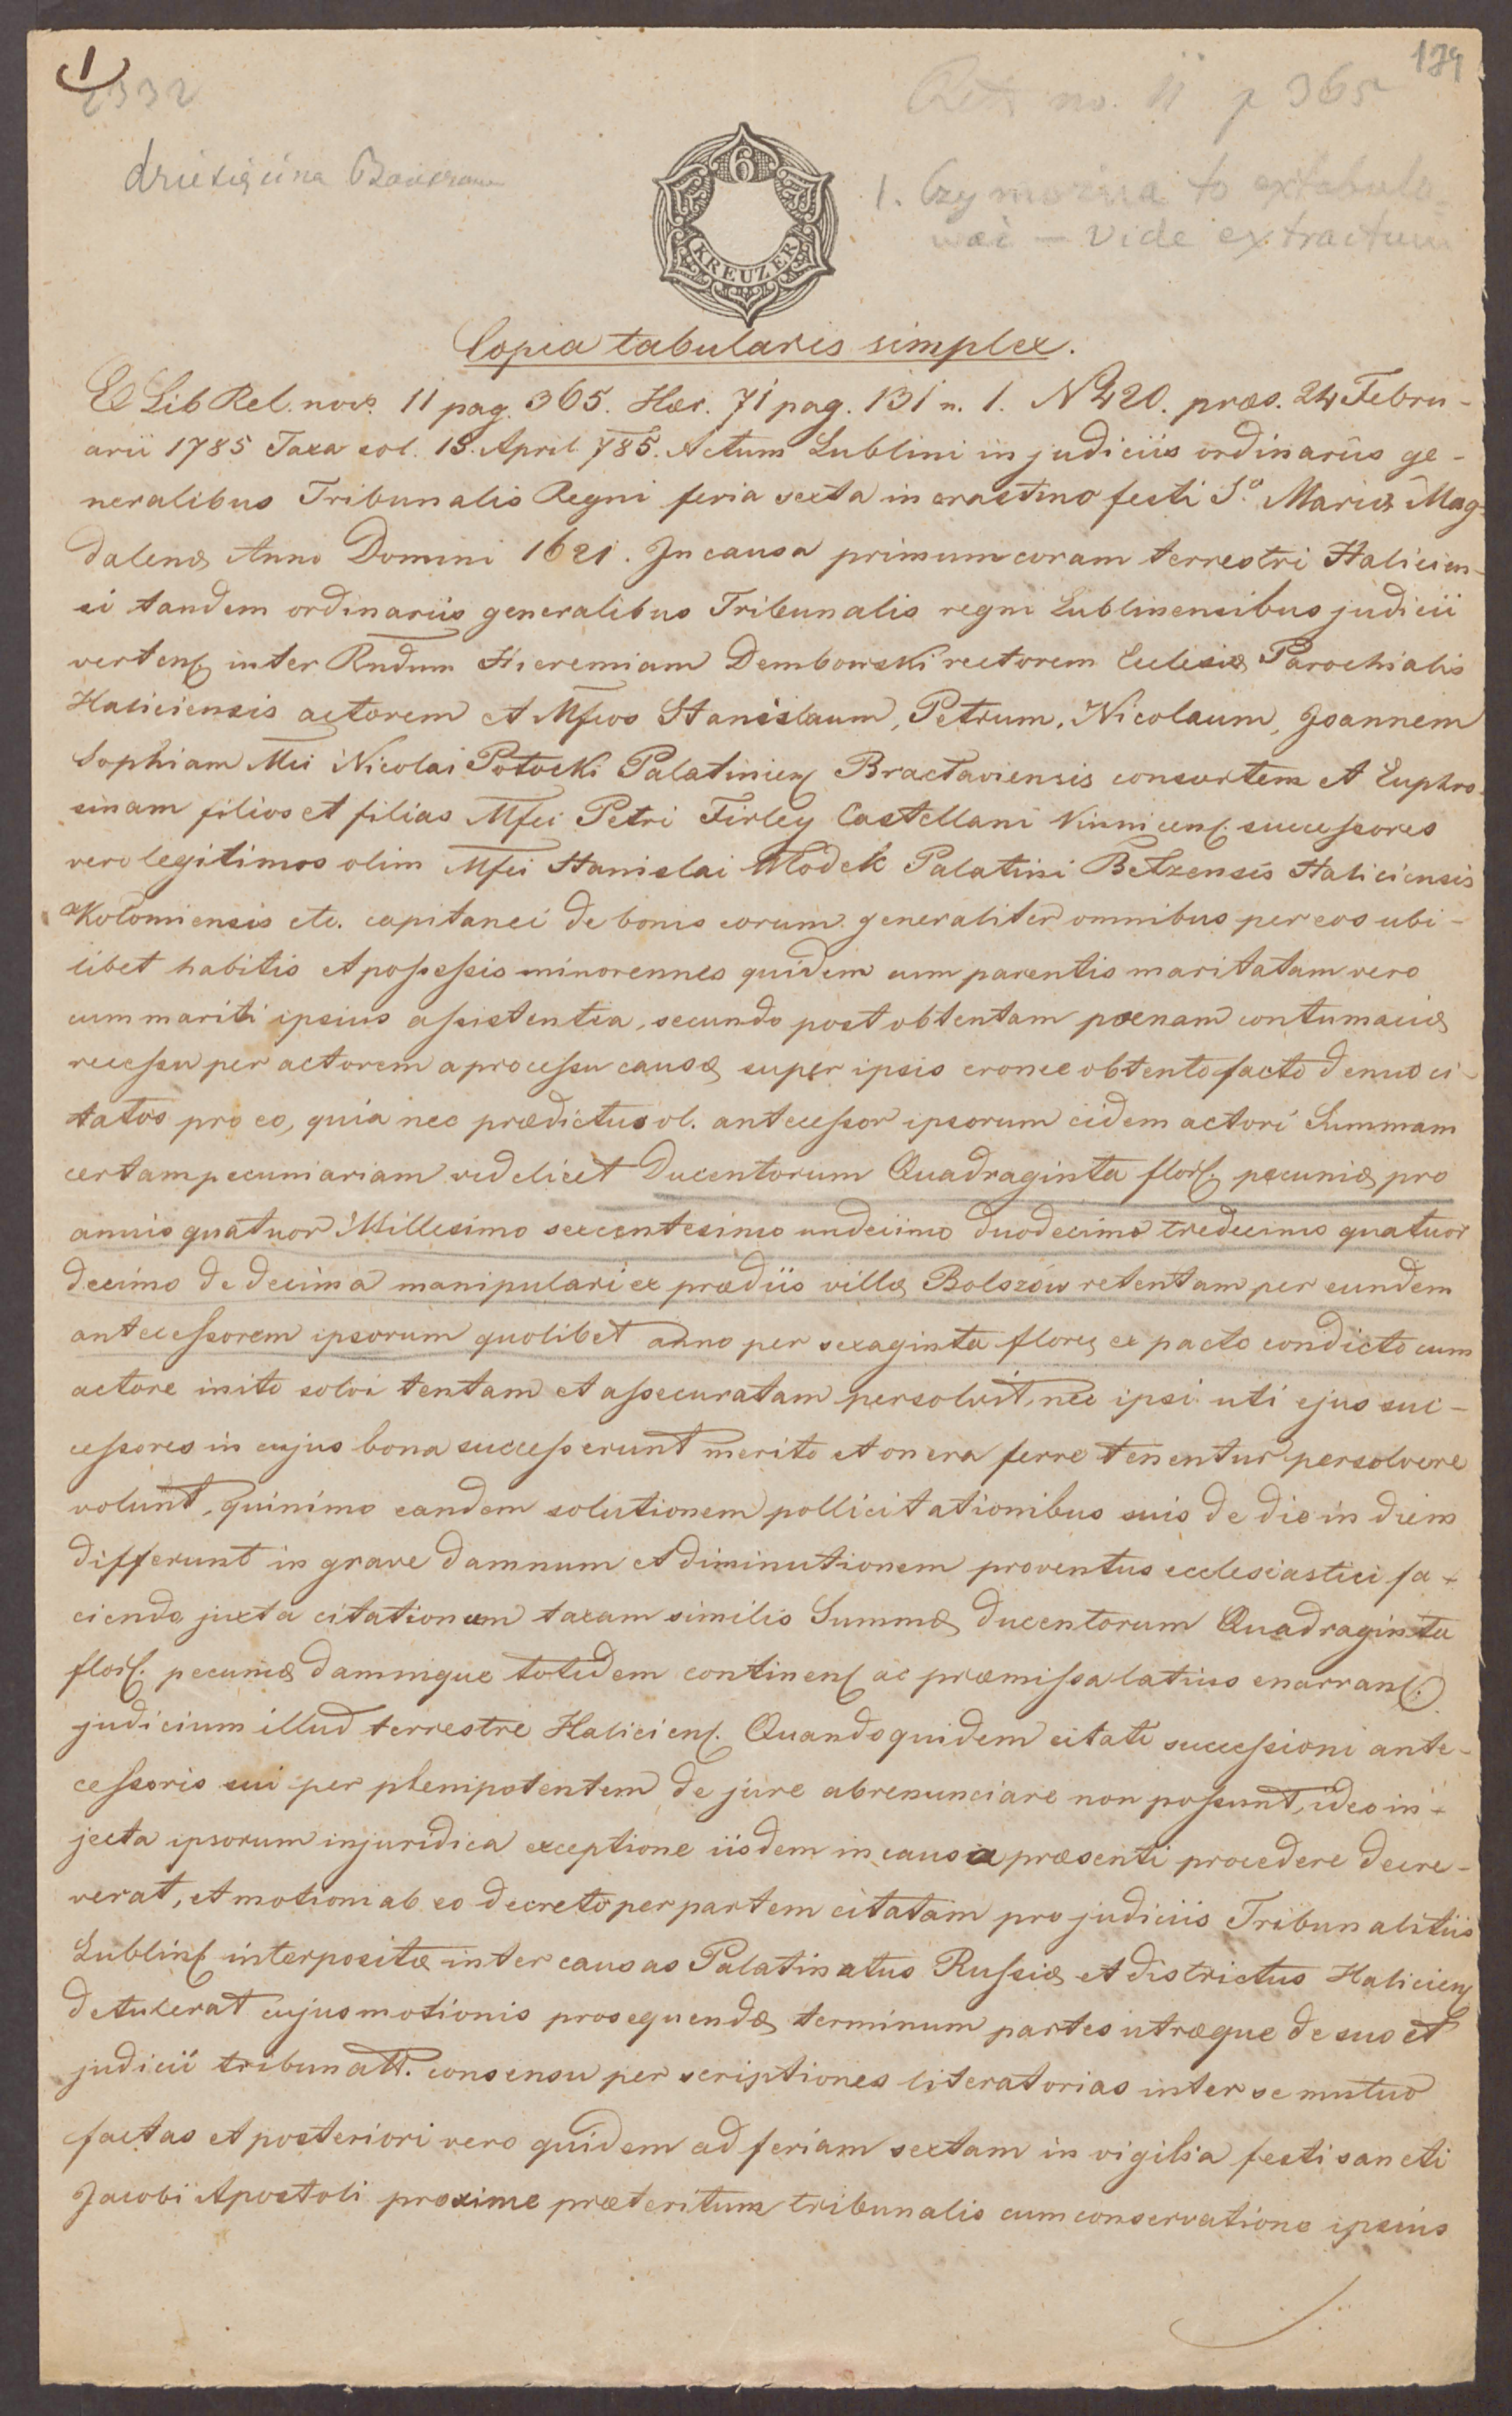 1
179
2332
no. 11 p 365
dziesięcina
1. Czy można to extabulo-
wać – Vide extractum
6
KREUZER
Copia tabularis simplex.
E Lib Rel. nov. 11 pag. 365. Hær. 71 pag. 131 n. 1. N 420. præs. 24 Febru-
arii 1785 Taxa sol. 13. April 785. Actum Lublini in judiciis ordinariis ge-
neralibus Tribunalis Regni feria sexta in crastino festi S. Mariæ Mag-
dalenæ Anno Domini 1621. In causa primum coram terrestri Halicien-
si tandem ordinariis generalibus Tribunalis regni Lublinensibus judicii
verten. inter Rndum Hieremiam Dembowski rectorem Eclesiæ Parochialis
Haliciensis actorem et Mfcos Stanislaum, Petrum, Nicolaum, Joannem
Sophiam Mci Nicolai Potocki Palatinien. Bractaviensis consortem et Euphro-
sinam filios et filias Mfci Petri Firley Castellani Vinnicen. successores
vero legitimos olim Mfci Stanislai Wlodek Palatini Betzensis Haliciensis
Kolomiensis etc. capitanei de bonis eorum generaliter omnibus per eos ubi-
libet habitis et possessis minorennes quidem cum parentis maritatam vero
cum mariti ipsius assistentia, secundo post obtentam pœnam contumaciæ
recessu per actorem a processu causæ super ipsis eronee obtento facto denuo ci-
tatos pro eo, quia nec prædictus ol. antecessor ipsorum eidem actori Summam
certam pecuniariam videlicet Ducentorum Quadraginta flor. pecuniæ pro
annis quatuor Millesimo sexcentesimo undecimo duodecimo tredecimo quatuor
decimo de decima manipulari ex prædiis villæ Bolszow retentam per eundem
antecessorem ipsorum quolibet anno per sexaginta flore. ex pacto condicto cum
actore inito solvi tentam et assecuratam persolvit, nec ipsi uti ejus suc-
cessores in cujus bona successerunt merito et onera ferre tenentur persolvere
volunt, quinimo eandem solutionem pollicitationibus suis de die in diem
differunt in grave damnum et diminutionem proventus ecclesiastici fa-
ciendo juxta citationem taxam similis Summæ ducentorum Quadraginta
flor. pecuniæ damnique totidem continen. ac præmissa latius enarran.
judicium illud terrestre Halicien. Quandoquidem citati successioni ante-
cessoris sui per plenipotentem de jure abrenunciare non possunt, ideo in-
jecta ipsorum injuridica exceptione iisdem in causa præsenti procedere decre-
verat, et motioni ab eo decreto per partem citatam pro judiciis Tribunalitiis
Lublin. interpositæ inter causas Palatinatus Russiæ et districtus Halicien.
detulerat cujus motionis prosequendæ terminum partes utræque de suo et
judicii tribunatt. consensu per scriptiones literatorias inter se mutuo
factas et posteriori vero quidem ad feriam sextam in vigilia festi sancti
Jacobi Apostoli proxime præteritum tribunalis cum conservatione ipsius